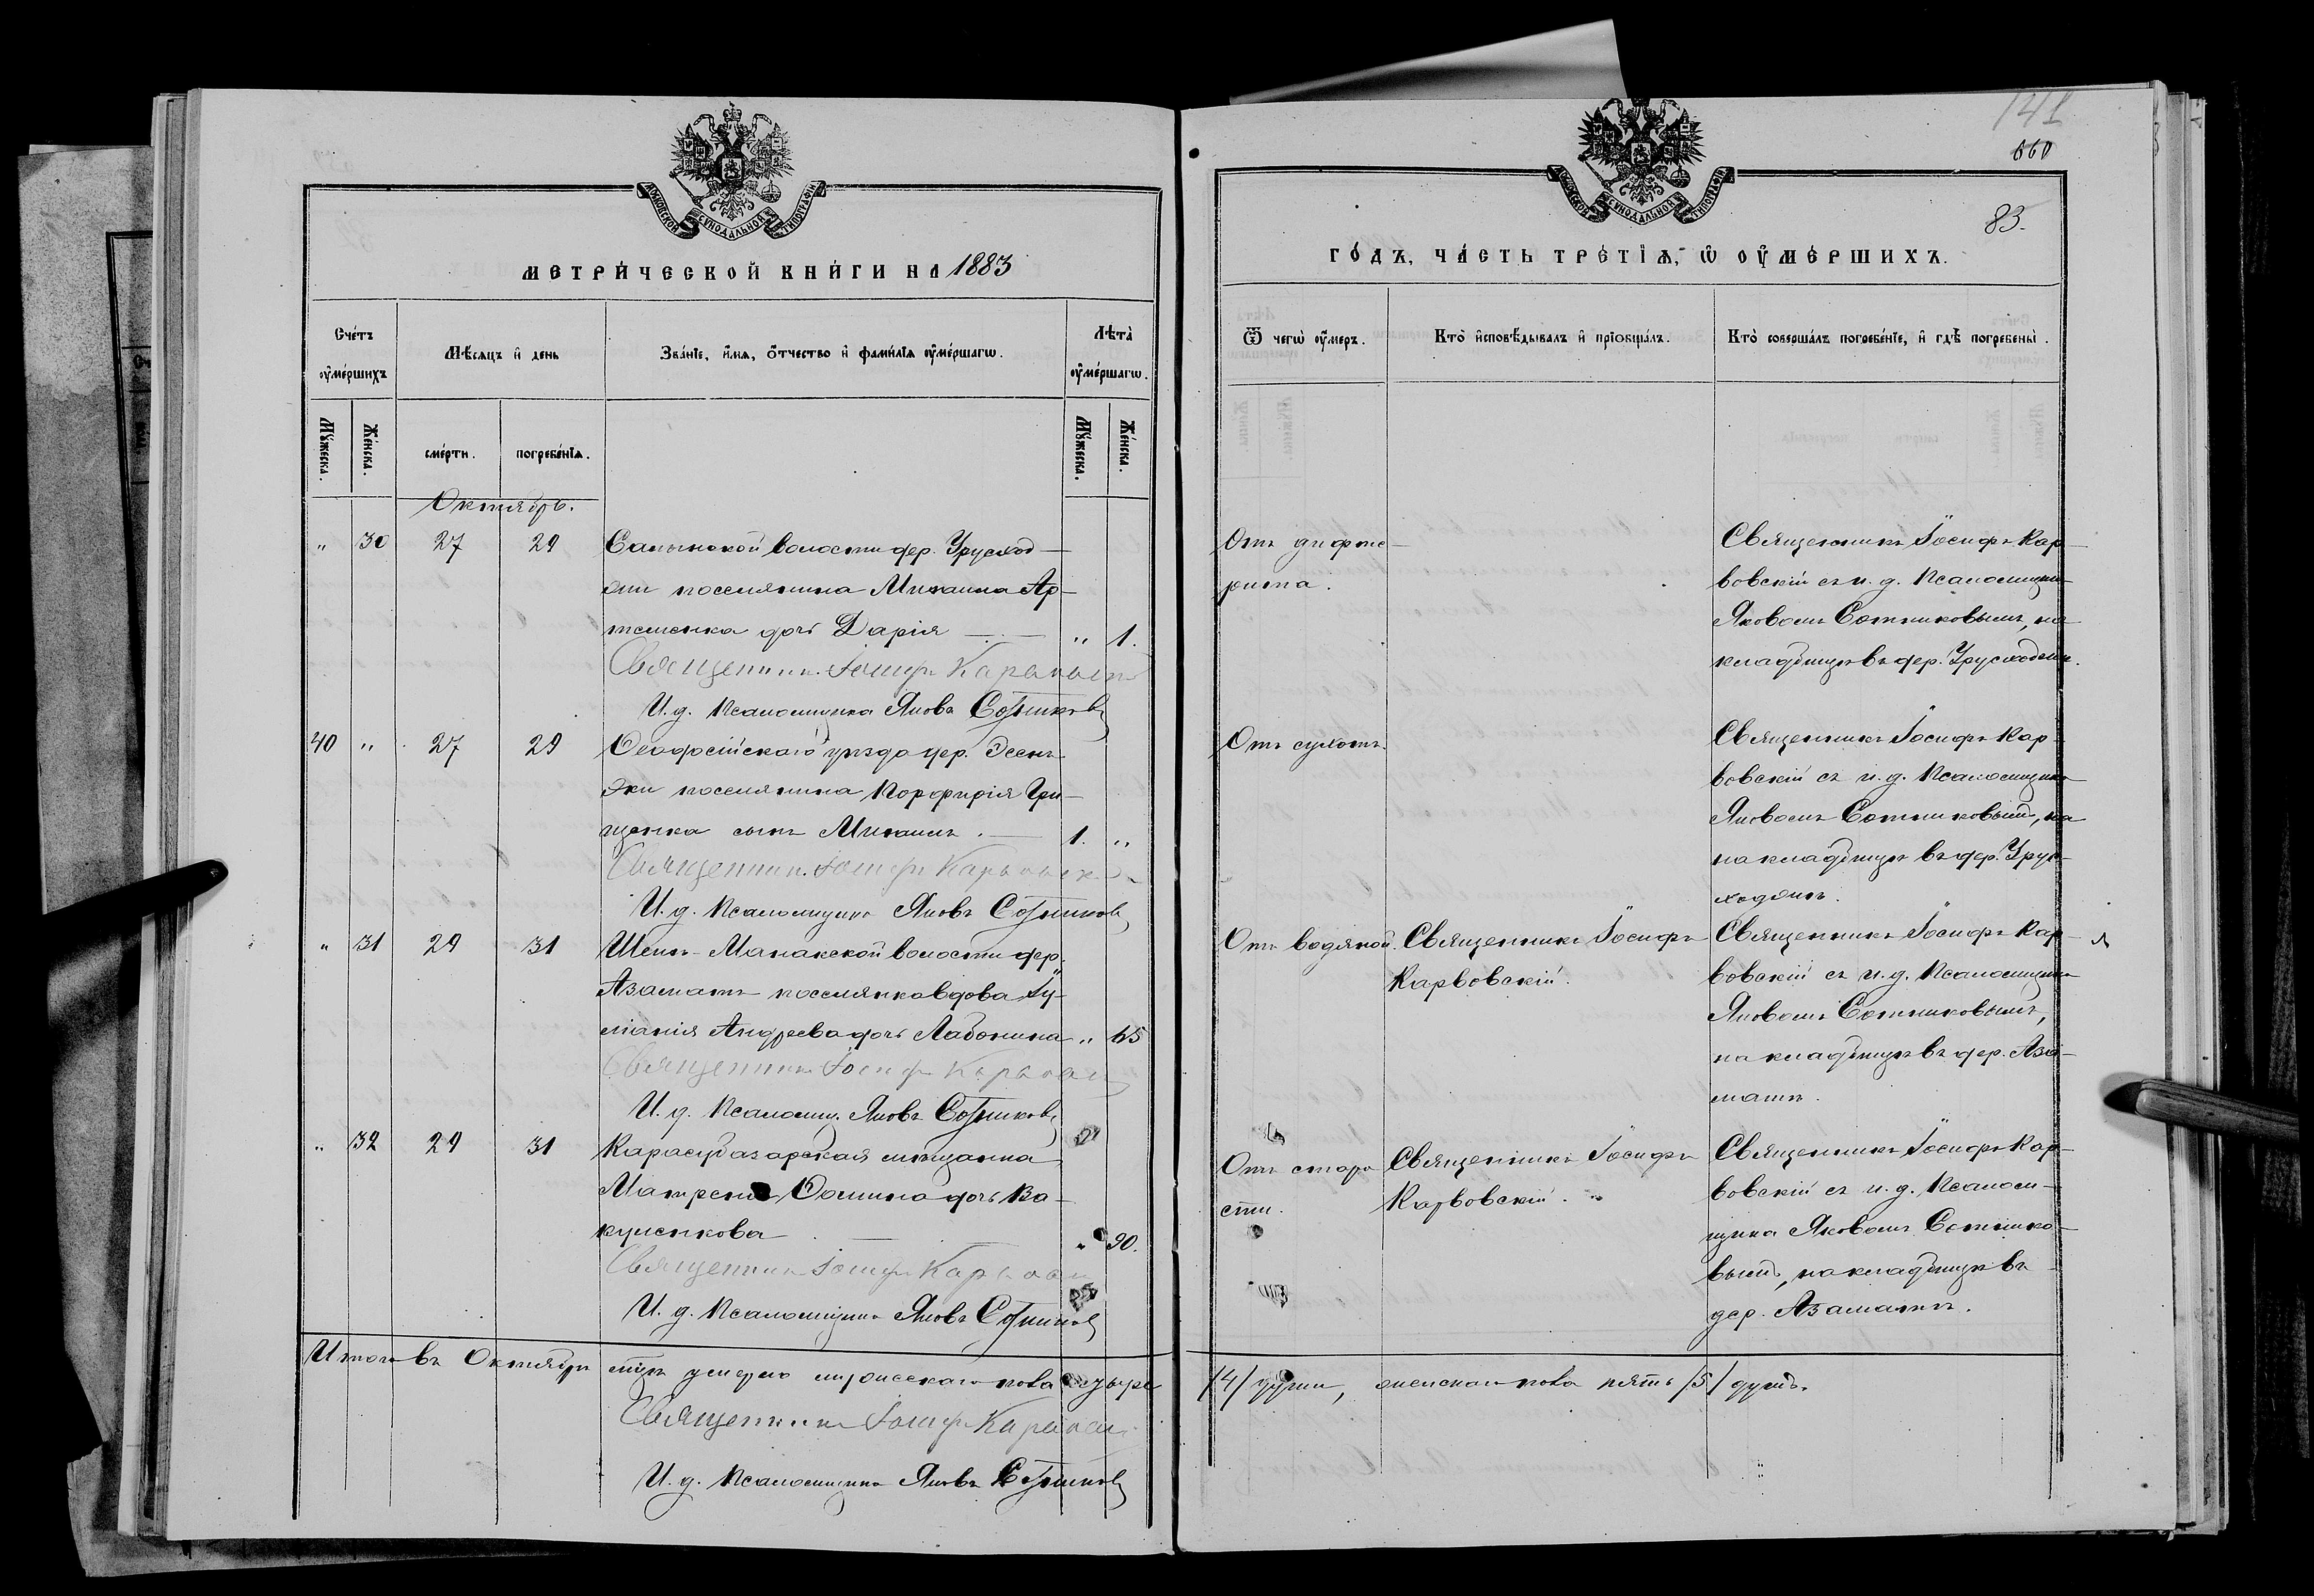 141
660
83.
МОСКОВСКОЙ СѴНОДАЛЬНОЙ ТИПОГРАФІИ
МЕТРИ́ЧЕСКОЙ КНИ́ГИ НА 1883
Сче́тъ ᲂу҆ме́ршихъ
Мѣ́сяцъ и҆ день
Зва́нїе, и҆́мѧ, ѻ҆́тчество и҆ фами́лїѧ ᲂу҆ме́ршагѡ.
Лѣта̀ ᲂу҆ме́ршагѡ.
Мꙋ́жеска.
Же́нска.
сме́рти.
погребе́нїѧ.
Мꙋ́жеска.
Же́нска.
Октябрь.
" 30 27 29 Салынской волости дер. Урусход-
жи поселянина Михаила Ар-
теменка дочь Дарія " 1.
Священникъ Іосифъ Карвовскій
И. д. Псаломщика Яковъ Сотниковъ
40 " 27 29 Ѳеодосійскаго уѣзда дер. Эсенъ-
Эки поселянина Порфирія Гри-
щенка сынъ Михаилъ. 1. "
Священникъ Іосифъ Карвовскій
И. д. Псаломщика Яковъ Сотниковъ
" 31 29 31 Шейхъ-Манакской волости дер.
Азаматъ поселянка вдова Іу-
ліанія Андреева дочь Лабонина " 65
Священникъ Іосифъ Карвовскій
И. д. Псаломщ. Яковъ Сотниковъ
" 32 29 31 Карасубазарская мѣщанка
Матрена Ѳомина дочь Ва-
куленкова " 90.
Священникъ Іосифъ Карвовскій
И. д. Псаломщика Яковъ Сотниковъ
Итого въ Октябрѣ мцѣ умерло мужескаго пола четыре
Священникъ Іосифъ Карвовскій
И. д. Псаломщика Яковъ Сотниковъ
МОСКОВСКОЙ СѴНОДАЛЬНОЙ ТИПОГРАФІИ
ГО́ДЪ, ЧА́СТЬ ТРЕ́ТІѦ, Ѡ҆ ОУ҆МЕ́РШИХЪ.
Ѿ чегѡ̀ ᲂу҆́меръ.
Кто̀ и҆сповѣ́дывалъ и҆ прїобща́лъ.
Кто̀ соверша́лъ погребе́нїе, и҆ гдѣ̀ погребены̀.
Отъ дифте-
рита.
Священникъ Іосифъ Кар-
вовскій съ и. д. Псаломщика
Яковомъ Сотниковымъ, на
кладбищѣ въ дер. Урусходжи.
Отъ сухотъ.
Священникъ Іосифъ Кар-
вовскій съ и. д. Псаломщика
Яковомъ Сотниковымъ, на
на кладбищѣ въ дер. Урус-
ходжи.
Отъ водяной.
Священникъ Іосифъ
Карвовскій.
Священникъ Іосифъ Кар-
вовскій съ и. д. Псаломщика
Яковомъ Сотниковымъ,
на кладбищѣ въ дер. Аза-
матъ.
Отъ старо
сти.
Священникъ Іосифъ
Карвовскій.
Священникъ Іосифъ Кар-
вовскій съ и. д. Псалом-
щика Яковомъ Сотнико-
вымъ, на кладбищѣ въ
дер. Азаматъ.
/4/ души, женскаго пола пять /5/ душъ.